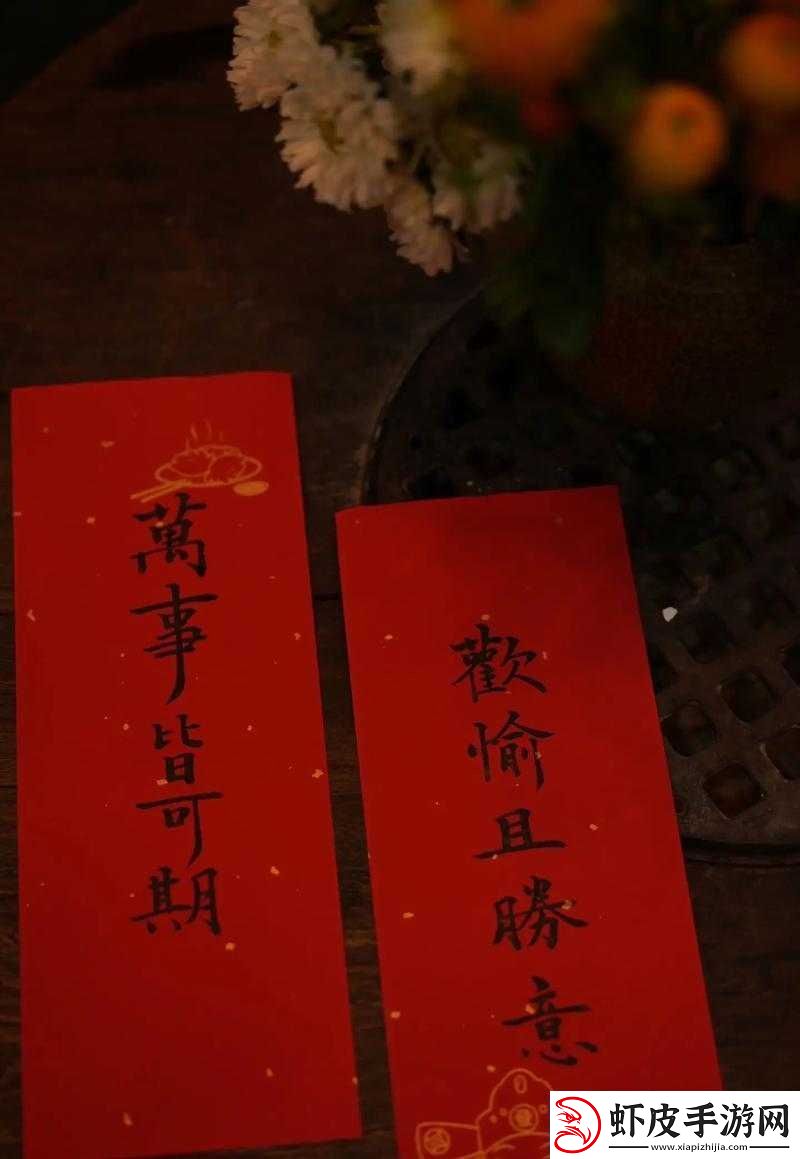 萬事皆可期
歡愉且勝意
虾皮手游网
www.xiapizhijia.com